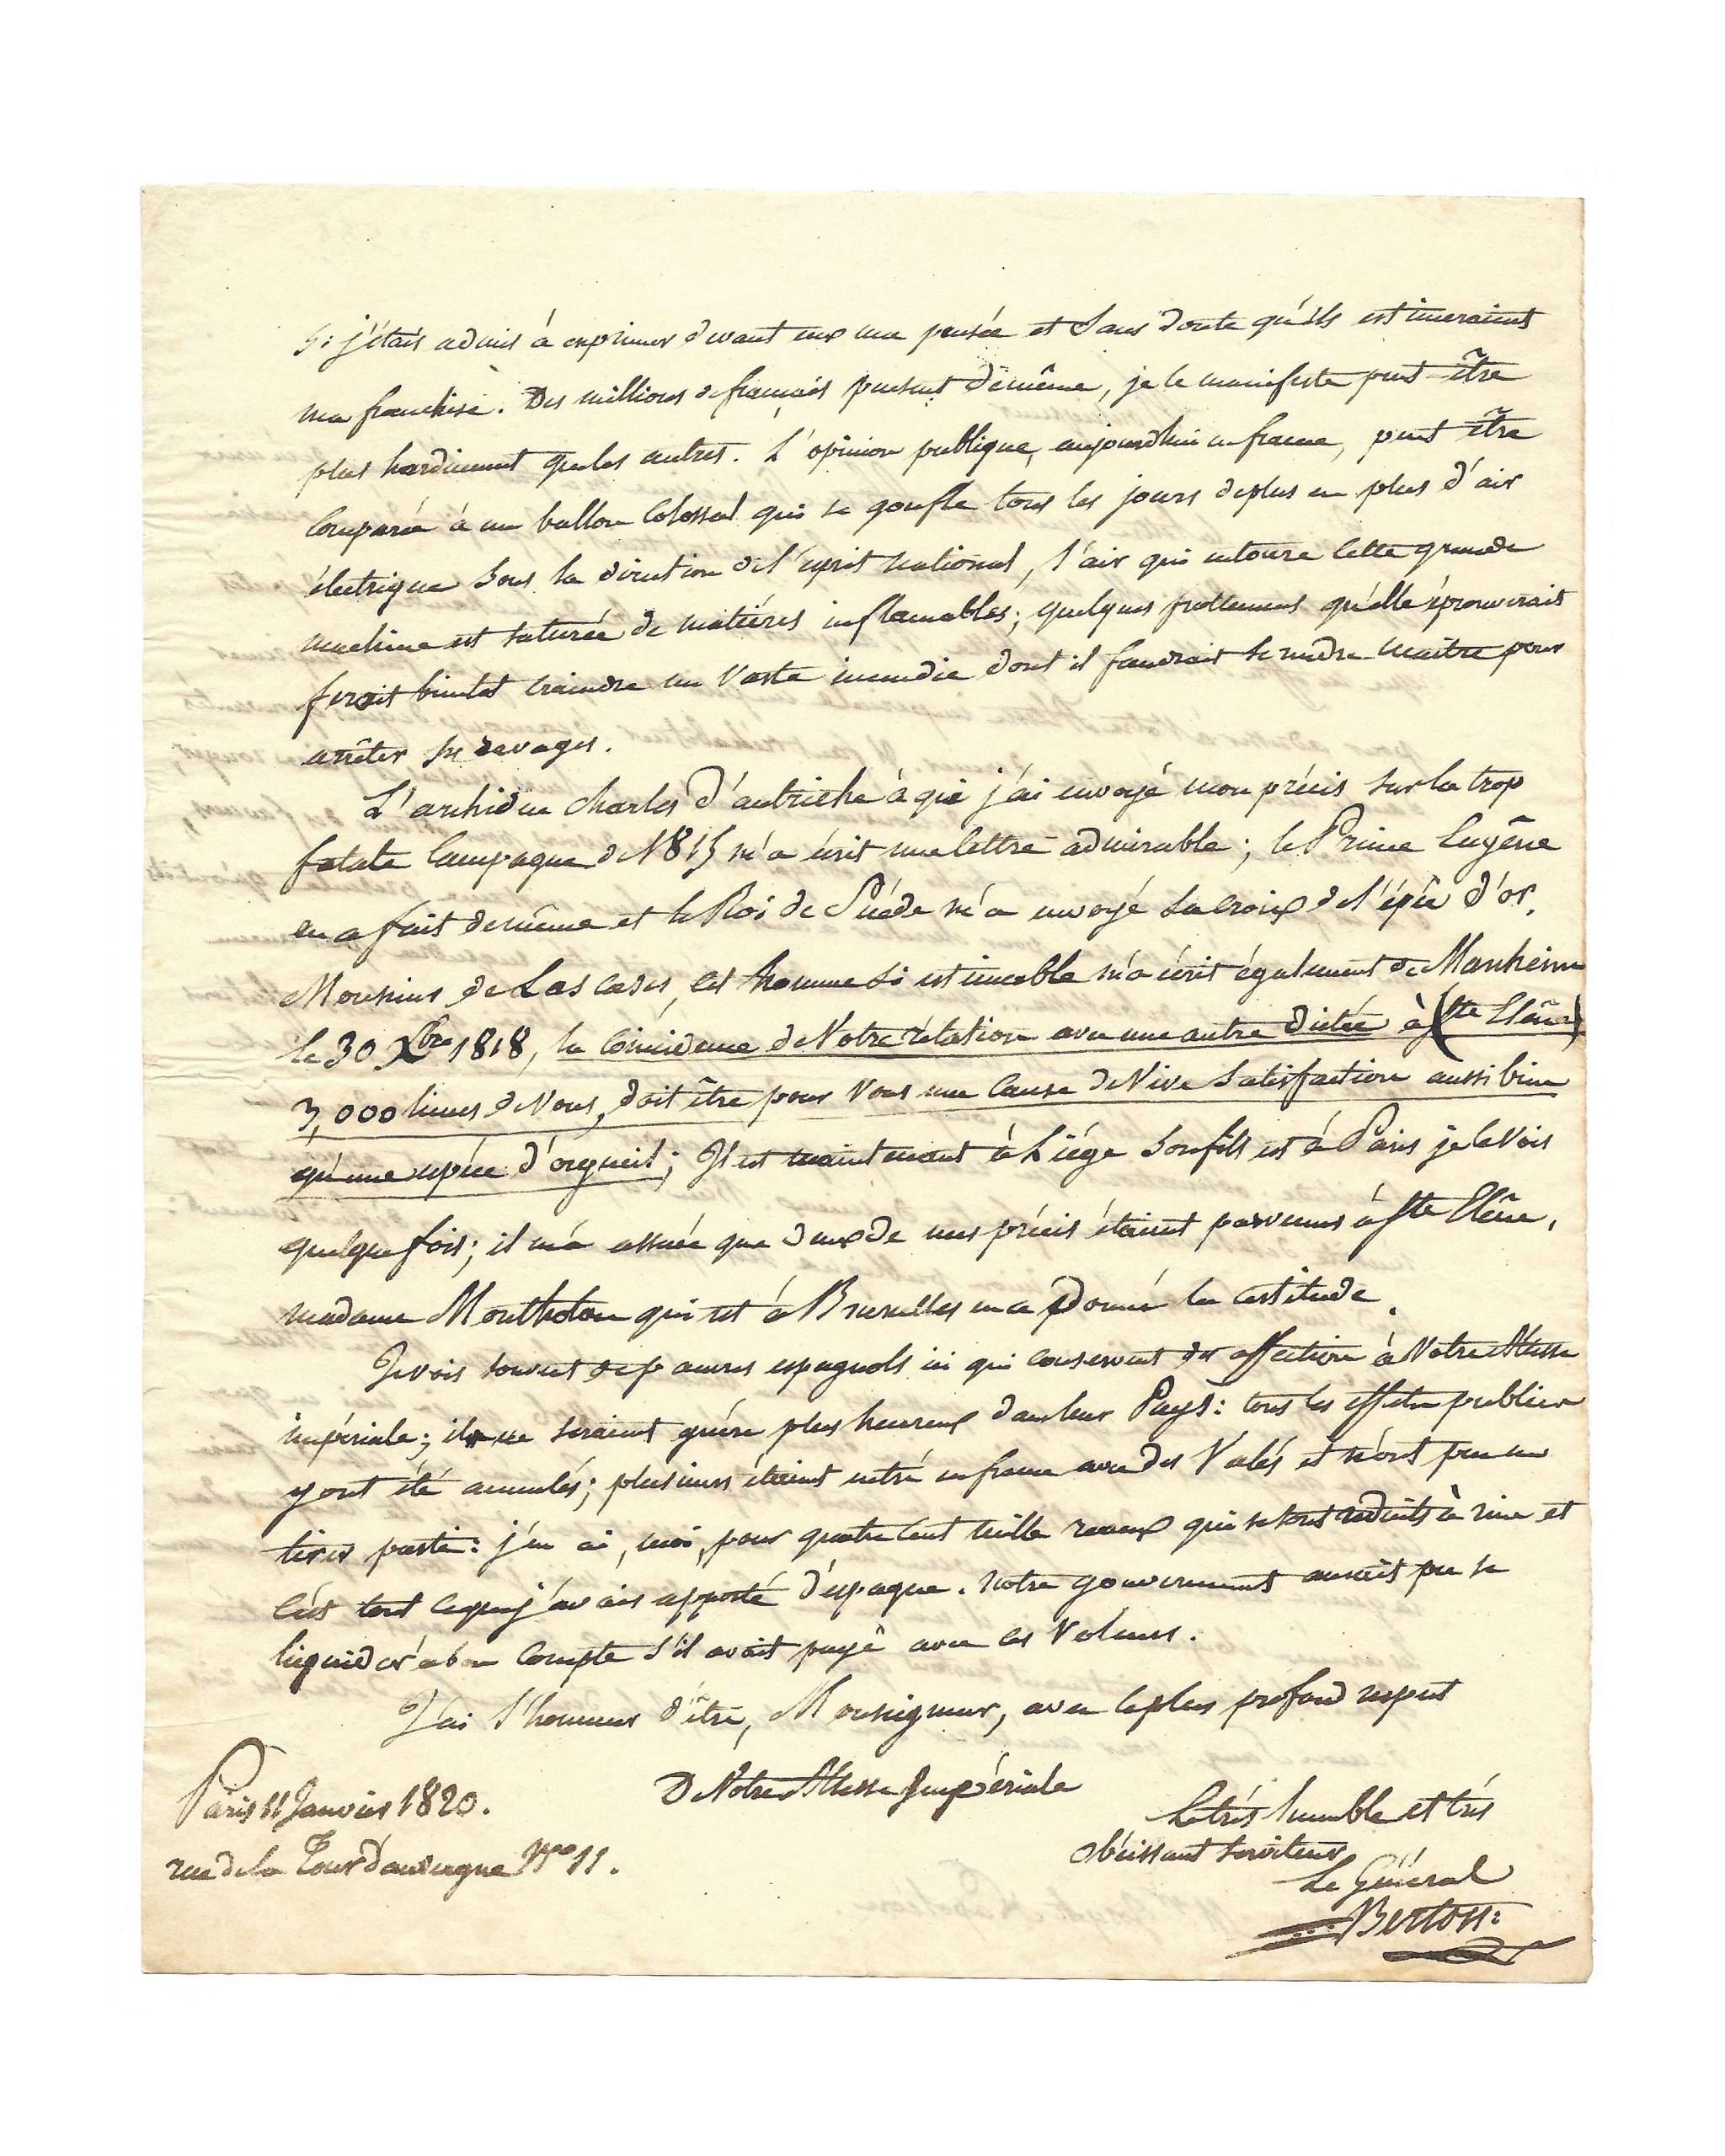 Si j'étais admis à exprimer devant eux ma pensée et sans doute qu'ils estimeraient
ma franchise. Des millions de français pensent de même, je le manifeste peut-être
plus hardiment que les autres. L'opinion publique, aujourdhui en france, peut être
comparée à un ballon colossal qui se gonfle tous les jours de plus en plus d'air
électrique sous la direction de l'esprit national, l'air qui entoure cette grande
machine est saturée de matières inflamables; quelques frottemens qu'elle éprouverait
ferait bientot craindre un vaste incendie dont il faudrait se rendre maître pour
arrêter ses ravages.
L'archiduc charles d'autriche à qui j'ai envoyé mon précis sur la trop
fatale campagne de 1815 m'a écrit une lettre admirable; le Prince Eugêne
en a fait de même et le Roi de Suéde m'a envoyé sa croix de l'épée d'or.
Monsieur de Las cases, cet homme si estimable m'a écrit également de Manheim
le 30 Xbre 1818, la coïncidence de Votre rélation avec une autre dictée à (Ste Elêne)
3,000 lieues de Vous, doit être pour Vous une cause de Vive satisfaction aussi bien
qu'une espèce d'orgueil; Il est maintenant à Liége son fils est à Paris je le Vois
quelque fois; il m'a assuré que deux de mes précis étaient parvenus à Ste Elêne,
madame Montholon qui est à Bruxelles m'en a donné la certitude.
Je vois souvent de pauvres espagnols ici qui conservent de l'affection à Votre Altesse
impériale; ils ne seraient guére plus heureux dans leur Pays: tous les effets publics
y ont été annulés; plusieurs étaient entré en france avec des Valés et n'ont pu en
tirer parti: j'en ai, moi, pour quatre cent mille reaux qui se sont réduits à rien et
c'est tout ce que j'avais apporté d'espagne. notre gouvernement aurait pu se
liquider à bon compte s'il avait payé avec ces Valeurs.
J'ai l'honneur d'être, Monseigneur, avec le plus profond respect
De Votre Altesse Impériale
Paris 11 Janvier 1820.
rue de la Tour d'auvergne No 11.
Le très humble et très
obéissant serviteur
Le Général
Berton